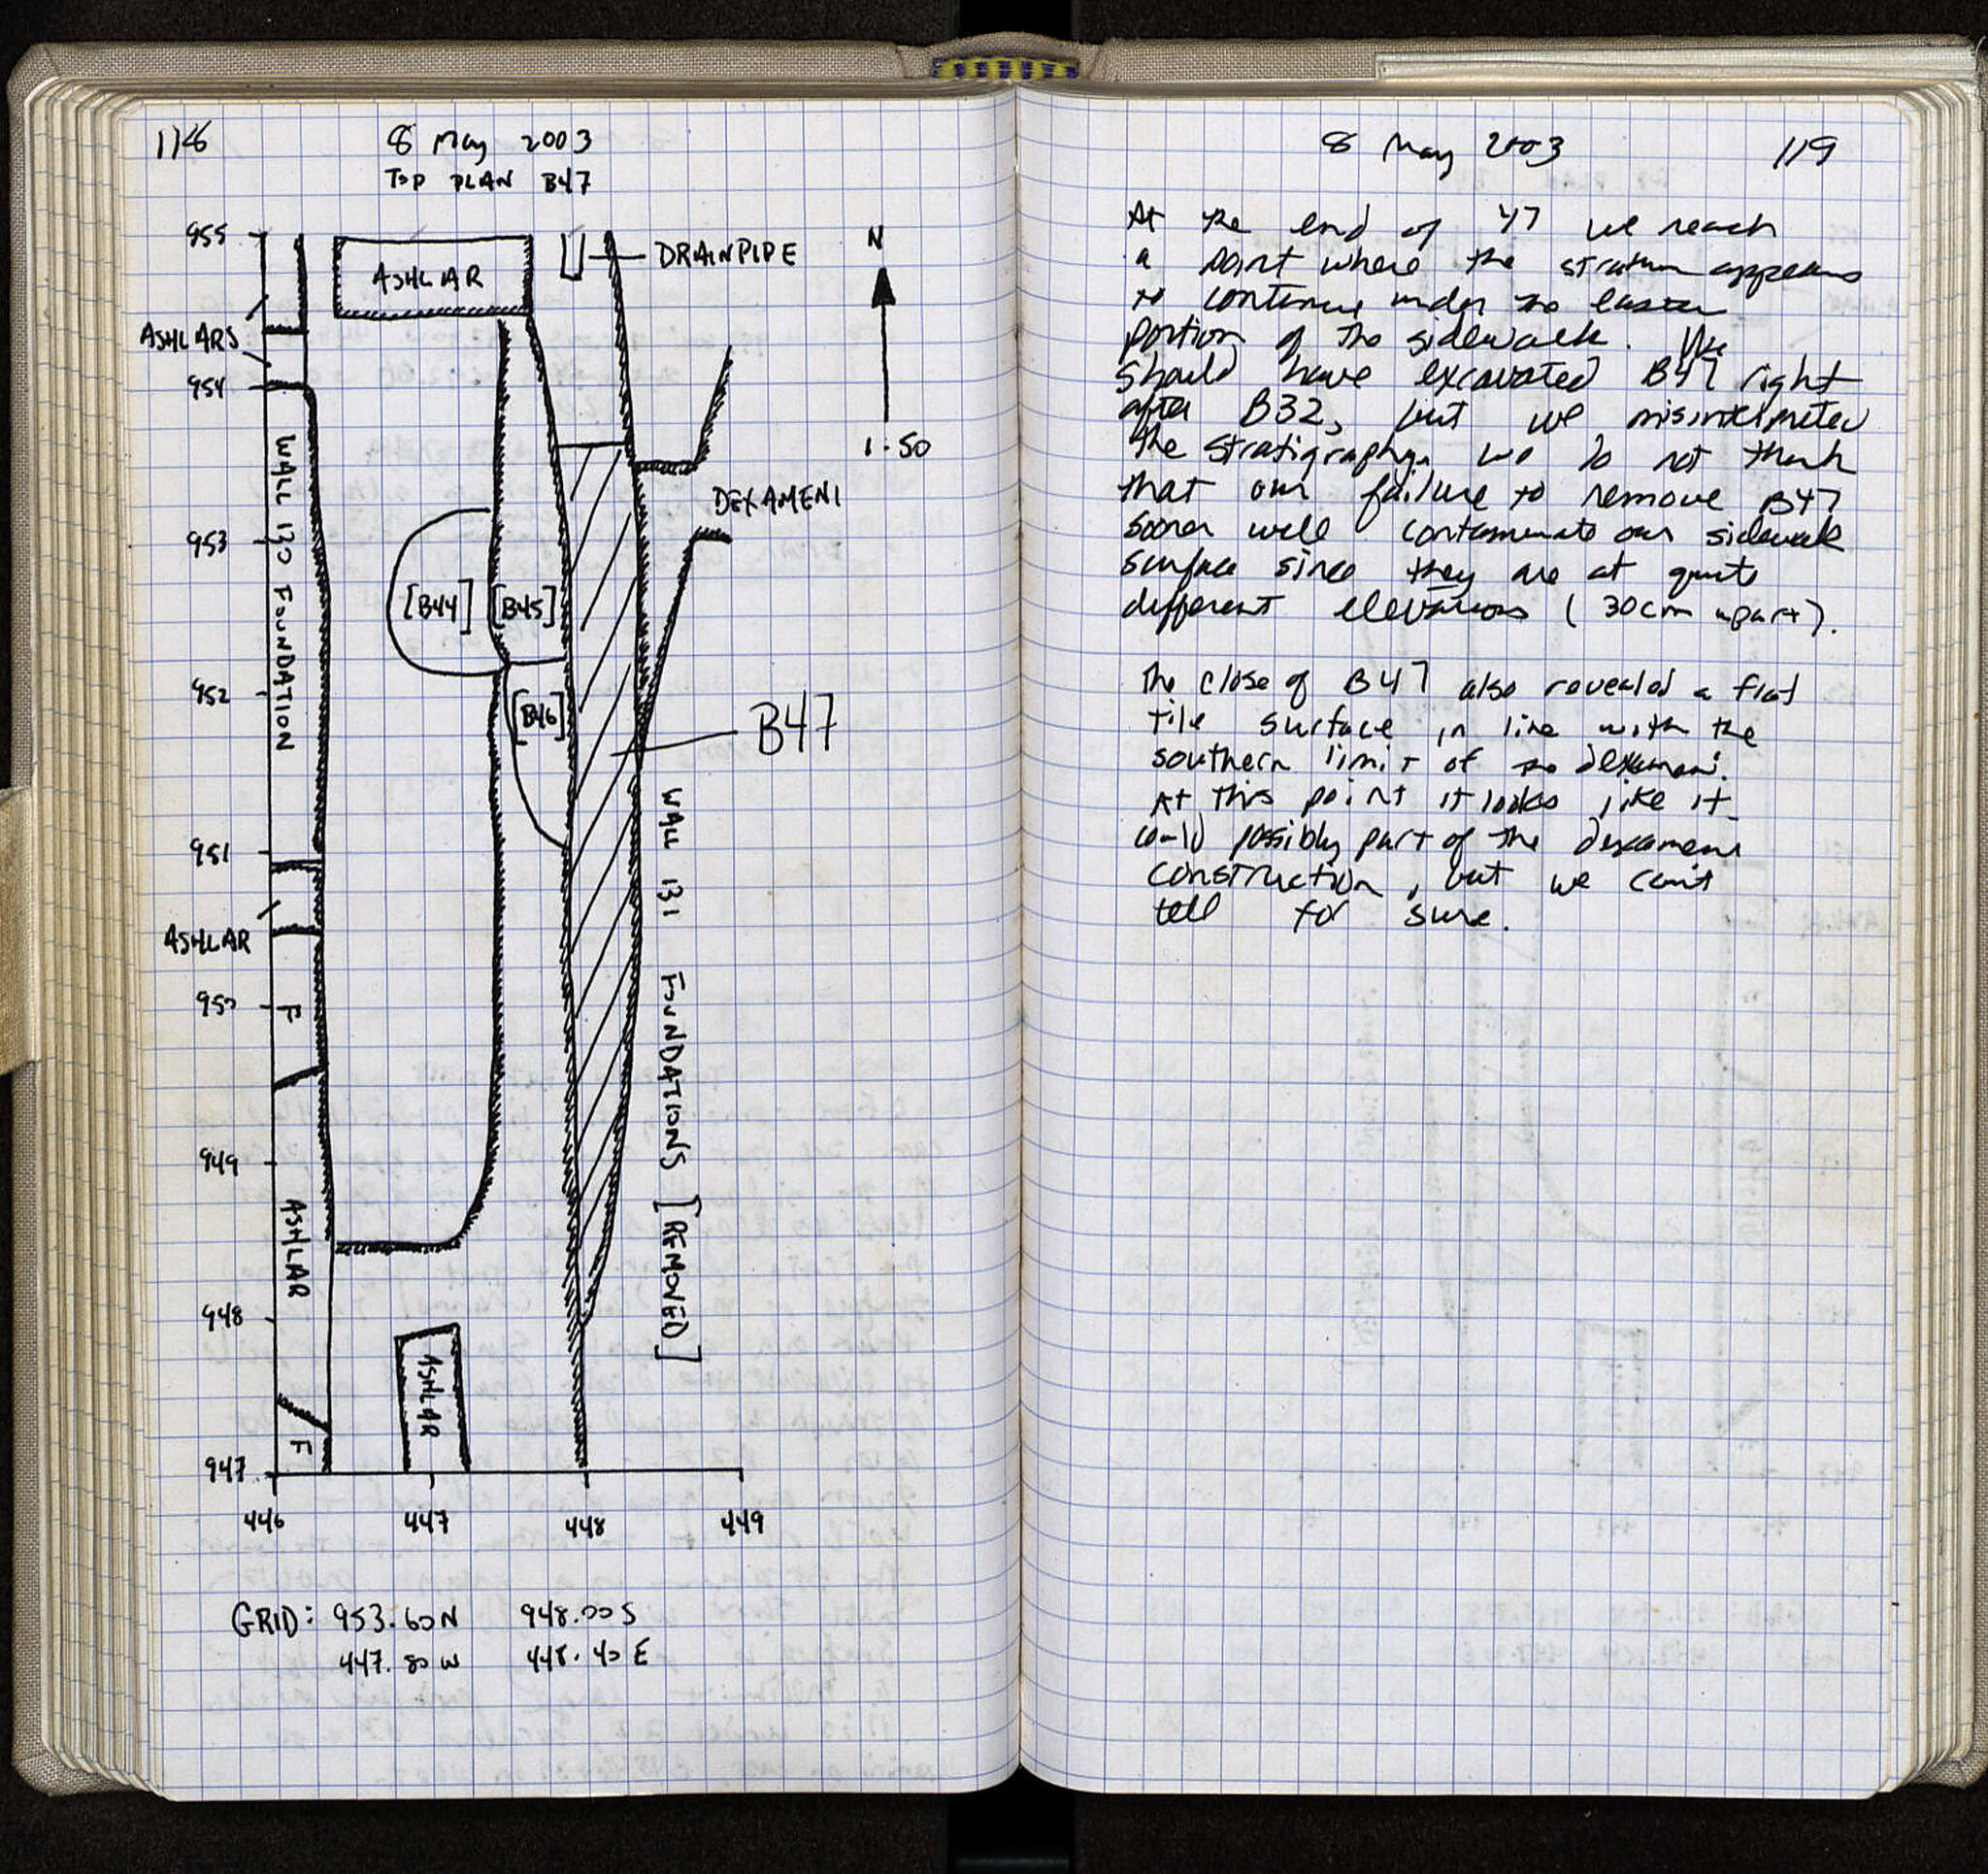 118
8 May 2003
TOP PLAN B47
955
ASHLAR
DRAINPIPE
N
ASHLARS
954
1:50
WALL 130 FOUNDATION
DEXAMENI
953
[B44] [B45]
952
[B46]
B47
951
WALL 131 FOUNDATIONS [REMOVED]
ASHLAR
950
F
949
ASHLAR
948
ASHLAR
F
947
446 447 448 449
GRID: 953.60N 948.00S
447.80W 448.40E
8 May 2003 119
At the end of 47 we reach
a point where the stratum appears
to continue under the eastern
portion of the sidewalk. We
should have excavated B47 right
after B32, but we misinterpreted
the stratigraphy. We do not think
that our failure to remove B47
sooner will contaminate our sidewalk
surface since they are at quite
different elevations (30cm apart).
The close of B47 also revealed a flat
tile surface in line with the
southern limit of the dexameni.
At this point it looks like it
could possibly part of the dexameni
construction, but we can't
tell for sure.